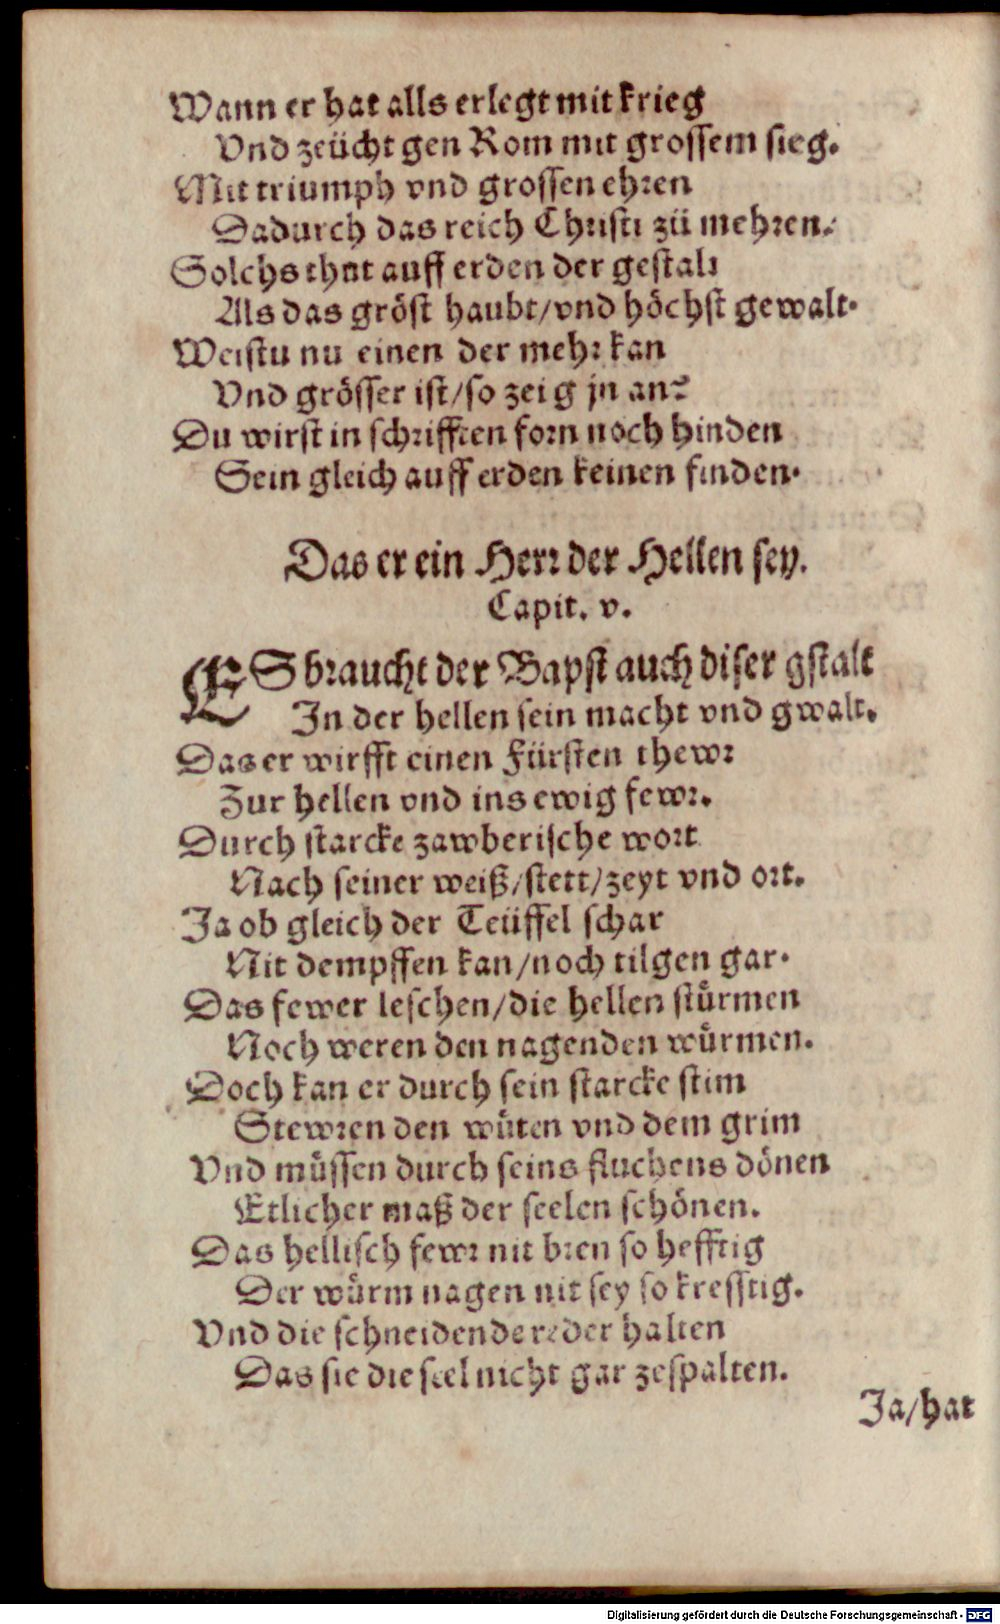 Wann er hat alls erlegt mit krieg
Vnd zeücht gen Rom mit grossem sieg.
Mit triumph vnd grossen ehren
Dadurch das reich Christi zü mehren.
Solchs thut auff erden der gestalt
Als das gröst haubt/vnd höchst gewalt.
Weistu nu einen der mehr kan
Vnd grösser ist/so zeig jn an?
Du wirst in schrifften forn noch hinden
Sein gleich auff erden keinen finden.
Das er ein Herr der Hellen sey.
Capit. v.
ES braucht der Bapst auch diser gstalt
In der hellen sein macht vnd gwalt.
Das er wirfft einen Fürsten thewr
Zur hellen vnd ins ewig fewr.
Durch starcke zawberische wort
Nach seiner weiß/stett/zeyt vnd ort.
Ja ob gleich der Teüffel schar
Nit dempffen kan/noch tilgen gar.
Das fewer leschen/die hellen stürmen
Noch weren den nagenden würmen.
Doch kan er durch sein starcke stim
Stewren den wüten vnd dem grim
Vnd müssen durch seins fluchens dönen
Etlicher maß der seelen schönen.
Das hellisch fewr nit bren so hefftig
Der würm nagen nit sey so kresstig.
Vnd die schneidende reder halten
Das sie die seel nicht gar zespalten.
Ja/hat
Digitalisierung gefördert durch die Deutsche Forschungsgemeinschaft - DFG